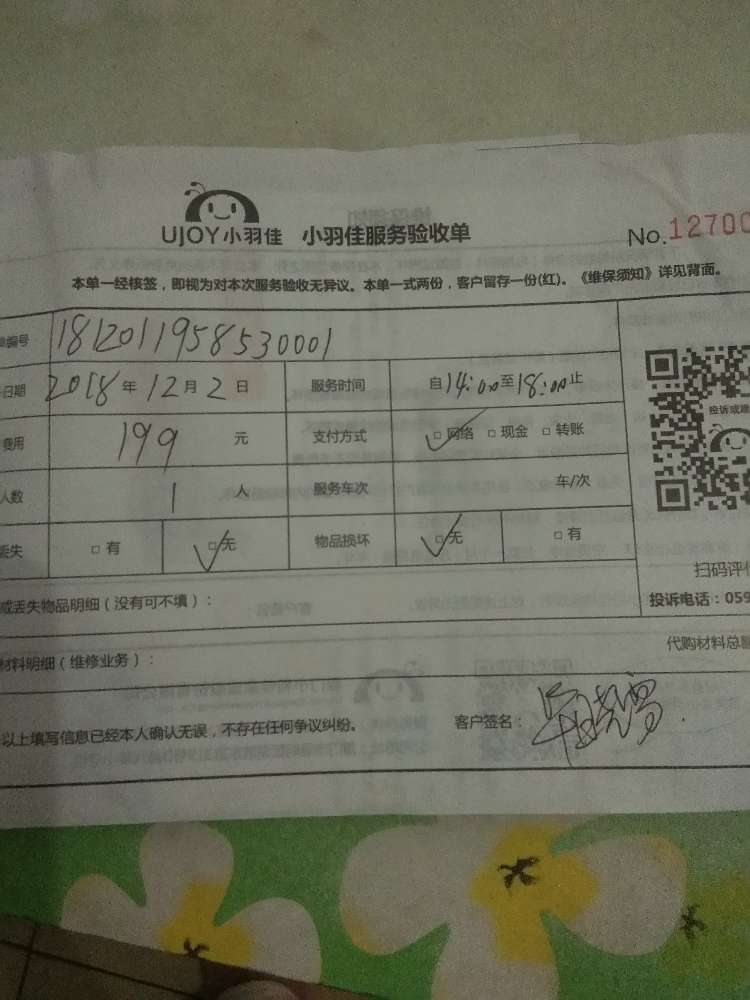 UJOY小羽佳 小羽佳服务验收单 No.12700
本单一经核签，即视为对本次服务验收无异议。本单一式两份，客户留存一份(红)。《维保须知》详见背面。
编号 1812011958530001
日期 2018年12月2日 服务时间 自14:00至18:00止
费用 199 元 支付方式 □网络 □现金 □转账
人数 1 人 服务车次 车/次
丢失 □有 □无 物品损坏 □无 □有
投诉或建
扫码评
或丢失物品明细（没有可不填）：
投诉电话：059
材料明细（维修业务）：
代购材料总
以上填写信息已经本人确认无误，不存在任何争议纠纷。 客户签名：